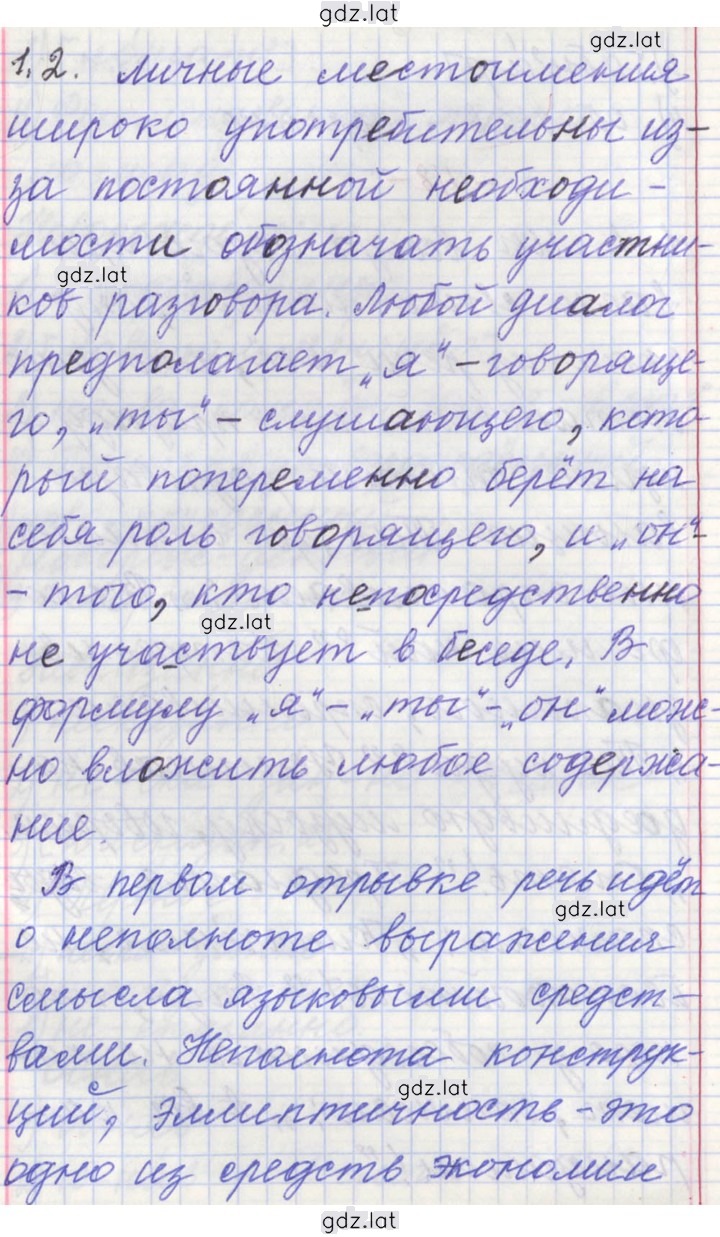 gdz.lat
gdz.lat
1.2. Личные местоимения
широко употребительны из-
за постоянной необходи-
мости обозначать участни-
gdz.lat
ков разговора. Любой диалог
предполагает „я“ – говоряще-
го, „ты“ – слушающего, кото-
рый попеременно берёт на
себя роль говорящего, и „он“-
- того, кто непосредственно
gdz.lat
не участвует в беседе. В
формулу „я“ – „ты“ – „он“ мож-
но вложить любое содержа-
ние.
В первом отрывке речь идёт
gdz.lat
о неполноте выражения
смысла языковыми средст-
вами. Неполнота конструк-
gdz.lat
ций, эллиптичность – это
одно из средств экономии
gdz.lat